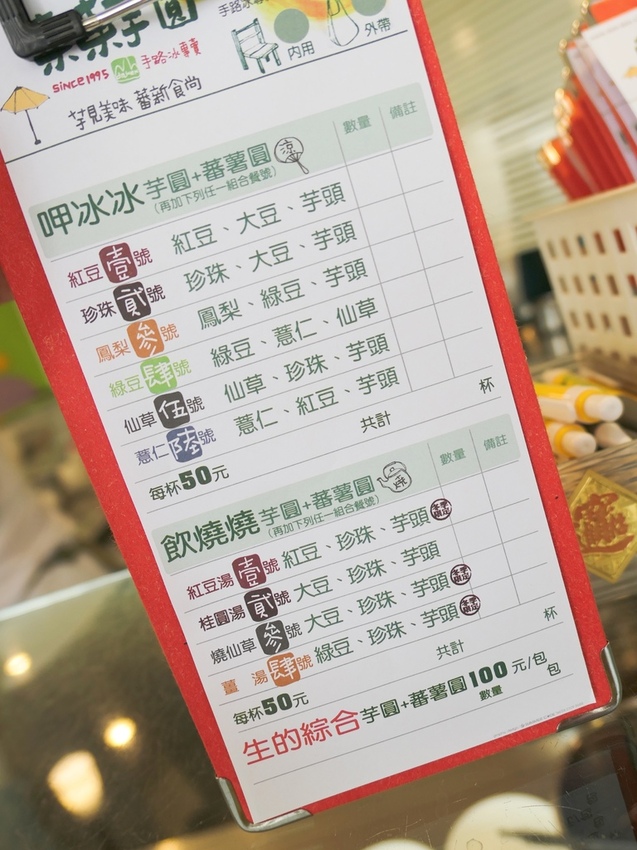 芋圓
手路冰專賣
since1995
內用
外帶
芋見美味 蕃新食尚
呷冰冰 芋圓+蕃薯圓 涼
(再加下列任一組合餐號)
數量 備註
紅豆壹號 紅豆、大豆、芋頭
珍珠貳號 珍珠、大豆、芋頭
鳳梨參號 鳳梨、綠豆、芋頭
綠豆肆號 綠豆、薏仁、仙草
仙草伍號 仙草、珍珠、芋頭
薏仁陸號 薏仁、紅豆、芋頭
每杯50元 共計 杯
飲燒燒 芋圓+蕃薯圓
(再加下列任一組合餐號)
數量 備註
紅豆湯壹號 紅豆、珍珠、芋頭 冬季限定
桂圓湯貳號 大豆、珍珠、芋頭
燒仙草參號 大豆、珍珠、芋頭 冬季限定
薑湯肆號 綠豆、珍珠、芋頭 冬季限定
每杯50元 共計 杯
生的綜合 芋圓+蕃薯圓 100元/包
數量 包